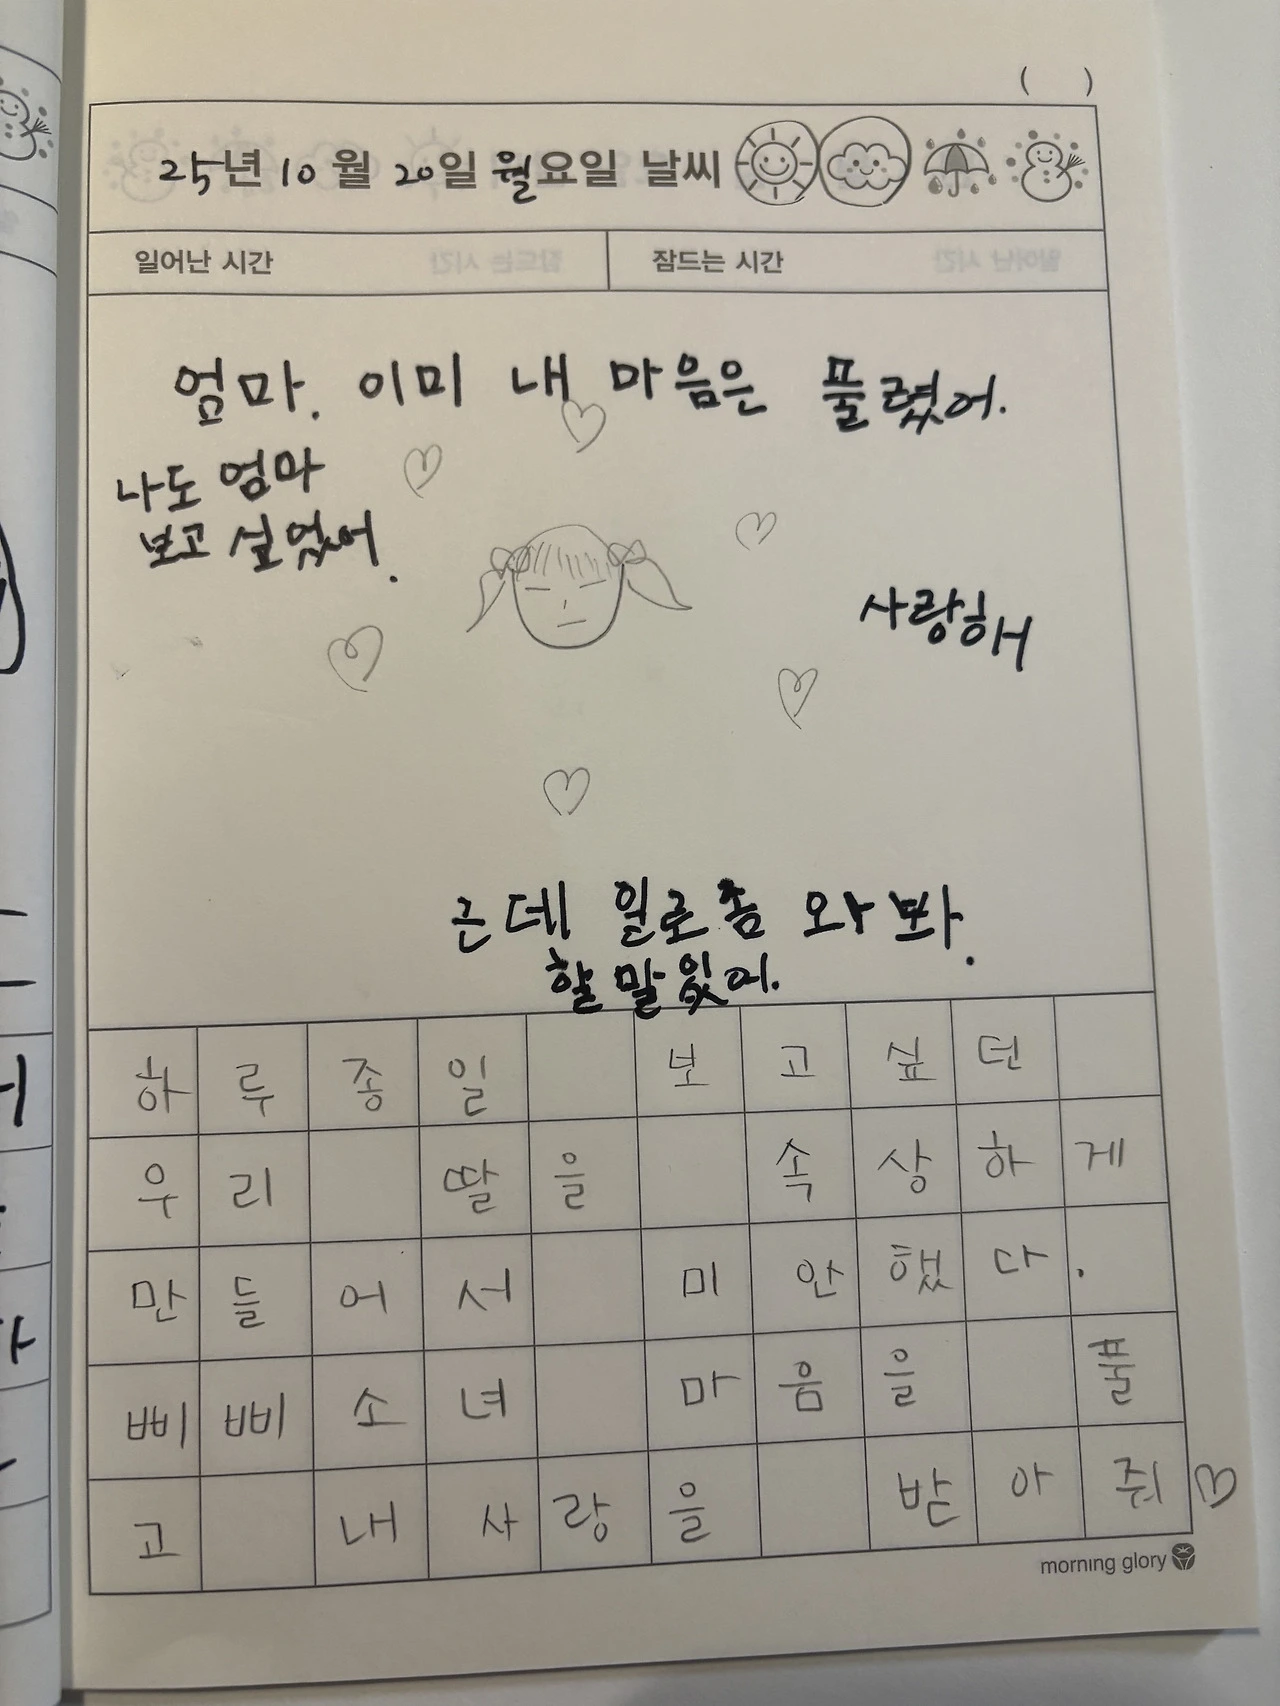 ( )
25년 10월 20일 월요일 날씨
일어난 시간 잠드는 시간
엄마. 이미 내 마음은 풀렸어.
나도 엄마
보고 싶었어.
사랑해
근데 일로 좀 와봐.
할 말 있어.
하루종일 보고싶던
우리 딸을 속상하게
만들어서 미안했다.
삐삐소녀 마음을 풀
고 내 사랑을 받아줘♡
morning glory